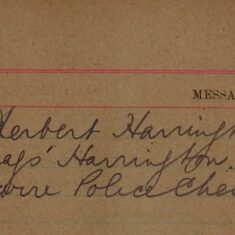 MESSA
Herbert Harring
ags' Harrington.
orre Police Che